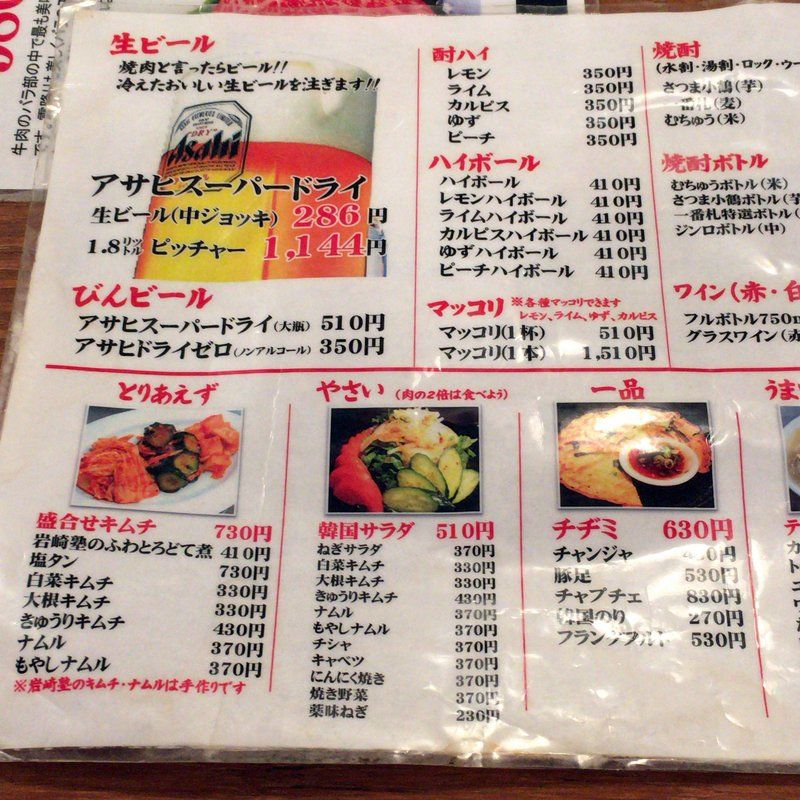 生ビール
焼肉と言ったらビール!!
冷えたおいしい生ビールを注ぎます!!
DRY
Asahi
アサヒスーパードライ
生ビール(中ジョッキ) 286円
1.8リットル ピッチャー 1,144円
びんビール
アサヒスーパードライ(大瓶) 510円
アサヒドライゼロ(ノンアルコール) 350円
酎ハイ
レモン 350円
ライム 350円
カルピス 350円
ゆず 350円
ピーチ 350円
ハイボール
ハイボール 410円
レモンハイボール 410円
ライムハイボール 410円
カルピスハイボール 410円
ゆずハイボール 410円
ピーチハイボール 410円
マッコリ ※各種マッコリできます
レモン、ライム、ゆず、カルピス
マッコリ(1杯) 510円
マッコリ(1本) 1,510円
焼酎
(水割・湯割・ロック・ウー
さつま小鶴(芋)
一番札(麦)
むちゅう(米)
焼酎ボトル
むちゅうボトル(米)
さつま小鶴ボトル(芋
一番札特選ボトル(
ジンロボトル(中)
ワイン(赤・白
フルボトル750m
グラスワイン(赤
とりあえず
盛合せキムチ 730円
岩崎塾のふわとろどて煮 410円
塩タン 730円
白菜キムチ 330円
大根キムチ 330円
きゅうりキムチ 430円
ナムル 370円
もやしナムル 370円
※岩崎塾のキムチ・ナムルは手作りです
やさい (肉の2倍は食べよう)
韓国サラダ 510円
ねぎサラダ 370円
白菜キムチ 330円
大根キムチ 330円
きゅうりキムチ 430円
ナムル 370円
もやしナムル 370円
チシャ 370円
キャベツ 370円
にんにく焼き 370円
焼き野菜 370円
薬味ねぎ 230円
一品
チヂミ 630円
チャンジャ
豚足 530円
チャプチェ 830円
韓国のり 270円
フランクフルト 530円
うま
牛肉のバラ部の中で最も美